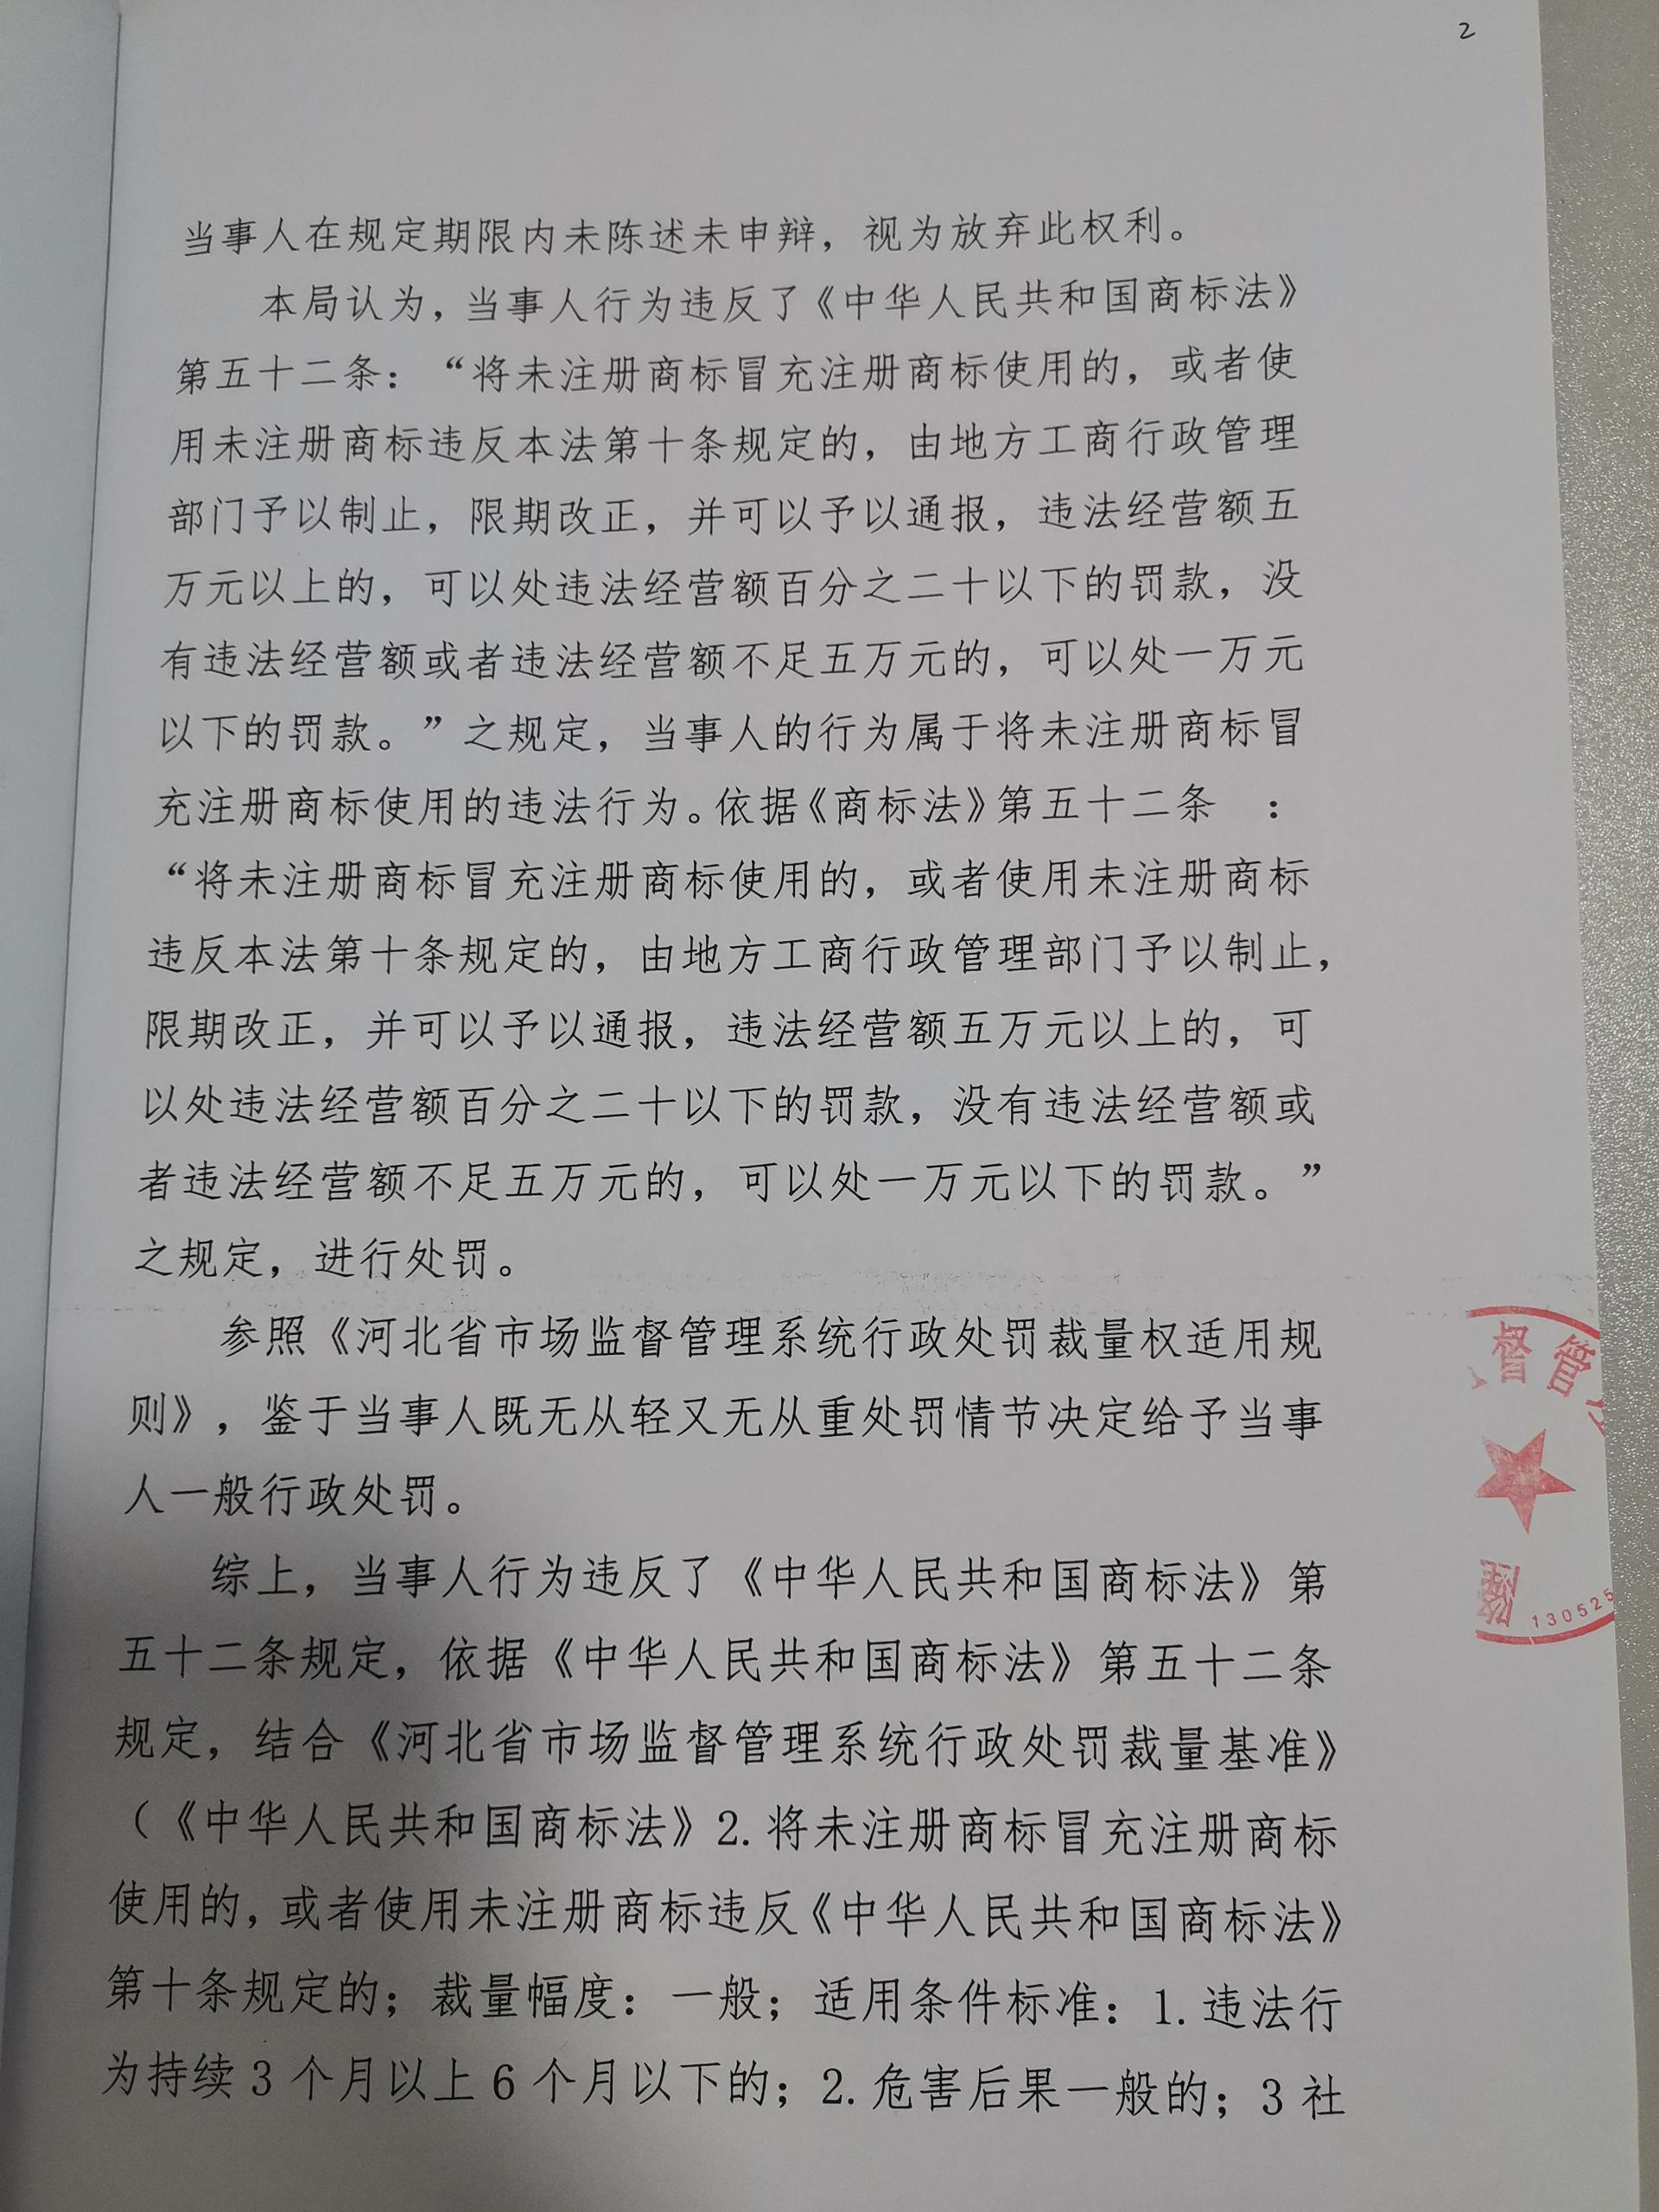 2
当事人在规定期限内未陈述未申辩，视为放弃此权利。
本局认为，当事人行为违反了《中华人民共和国商标法》
第五十二条：“将未注册商标冒充注册商标使用的，或者使
用未注册商标违反本法第十条规定的，由地方工商行政管理
部门予以制止，限期改正，并可以予以通报，违法经营额五
万元以上的，可以处违法经营额百分之二十以下的罚款，没
有违法经营额或者违法经营额不足五万元的，可以处一万元
以下的罚款。”之规定，当事人的行为属于将未注册商标冒
充注册商标使用的违法行为。依据《商标法》第五十二条　：
“将未注册商标冒充注册商标使用的，或者使用未注册商标
违反本法第十条规定的，由地方工商行政管理部门予以制止，
限期改正，并可以予以通报，违法经营额五万元以上的，可
以处违法经营额百分之二十以下的罚款，没有违法经营额或
者违法经营额不足五万元的，可以处一万元以下的罚款。”
之规定，进行处罚。
参照《河北省市场监督管理系统行政处罚裁量权适用规
则》，鉴于当事人既无从轻又无从重处罚情节决定给予当事
人一般行政处罚。
综上，当事人行为违反了《中华人民共和国商标法》第
五十二条规定，依据《中华人民共和国商标法》第五十二条
规定，结合《河北省市场监督管理系统行政处罚裁量基准》
（《中华人民共和国商标法》2.将未注册商标冒充注册商标
使用的，或者使用未注册商标违反《中华人民共和国商标法》
第十条规定的；裁量幅度：一般；适用条件标准：1.违法行
为持续3个月以上6个月以下的；2.危害后果一般的；3社
督管
隆
130525